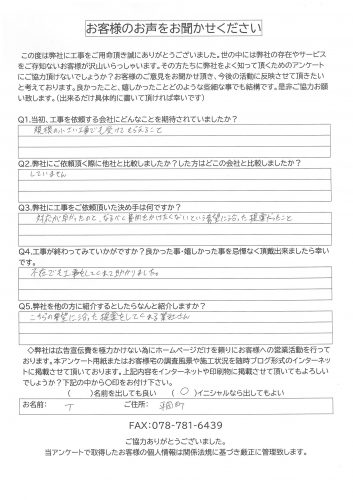 お客様のお声をお聞かせください
この度は弊社に工事をご用命頂き誠にありがとうございました。世の中には弊社の存在やサービス
をご存知ないお客様が沢山いらっしゃいます。その方たちに弊社をよく知って頂くためのアンケート
にご協力頂けないでしょうか？お客様のご意見をお聞かせ頂き、今後の活動に反映させて頂きたい
と考えております。良かったこと、嬉しかったことどのような些細な事でも結構です。是非ご協力お願
い致します。（出来るだけ具体的に書いて頂ければ幸いです）
Q1.当初、工事を依頼する会社にどんなことを期待されていましたか？
規模の小さい工事でも受けてもらえること
Q2.弊社にご依頼頂く際に他社と比較しましたか？した方はどこの会社と比較しましたか？
していません
Q3.弊社に工事をご依頼頂いた決め手は何ですか？
対応が早かったので、なるべく費用をかけたくないという希望に沿った提案だったこと
Q4.工事が終わってみていかがですか？良かった事・嬉しかった事を忌憚なく頂戴出来ましたら幸
いです。
不在でも工事をしてくれて助かりました。
Q5.弊社を他の方に紹介するとしたらなんと紹介しますか？
こちらの希望に沿った提案をしてくれる業社さん
◇弊社は広告宣伝費を極力かけない為にホームページだけを頼りにお客様への営業活動を行って
おります。本アンケート用紙またはお客様宅の調査風景や施工状況を随時ブログ形式のインターネッ
トに掲載させて頂いております。上記内容をインターネットや印刷物に掲載させて頂いてもよろしい
でしょうか？下記の中から〇印をお付け下さい。
（　　）名前を出しても良い　（〇）イニシャルなら出してもよい
お名前: T　ご住所:
FAX:078-781-6439
ご協力ありがとうございました。
当アンケートで取得したお客様の個人情報は関係法規に基づき厳正に管理致します。